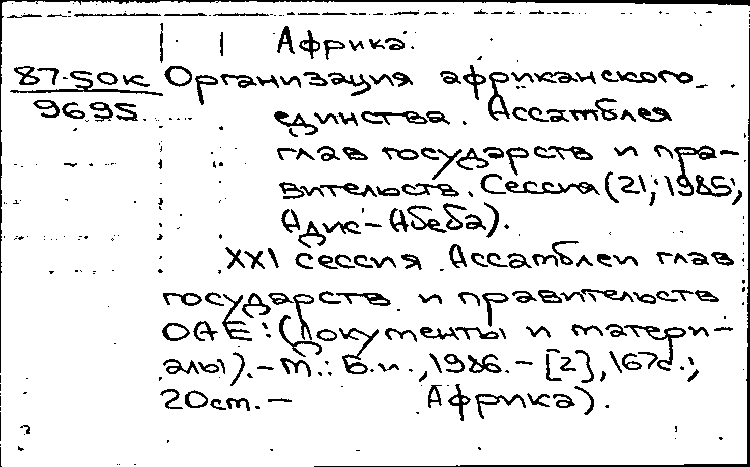 Африка.
87-50K Организация африканского
9695 единства. Ассамблея
глав государств и пра-
вительств. Сессия (21; 1985;
Адис-Абеба).
XXI сессия Ассамблеи глав
государств и правительств
ОАЕ: (Документы и матери-
алы). - М.: Б.и., 1986. - [2], 167с.;
20см. - Африка).